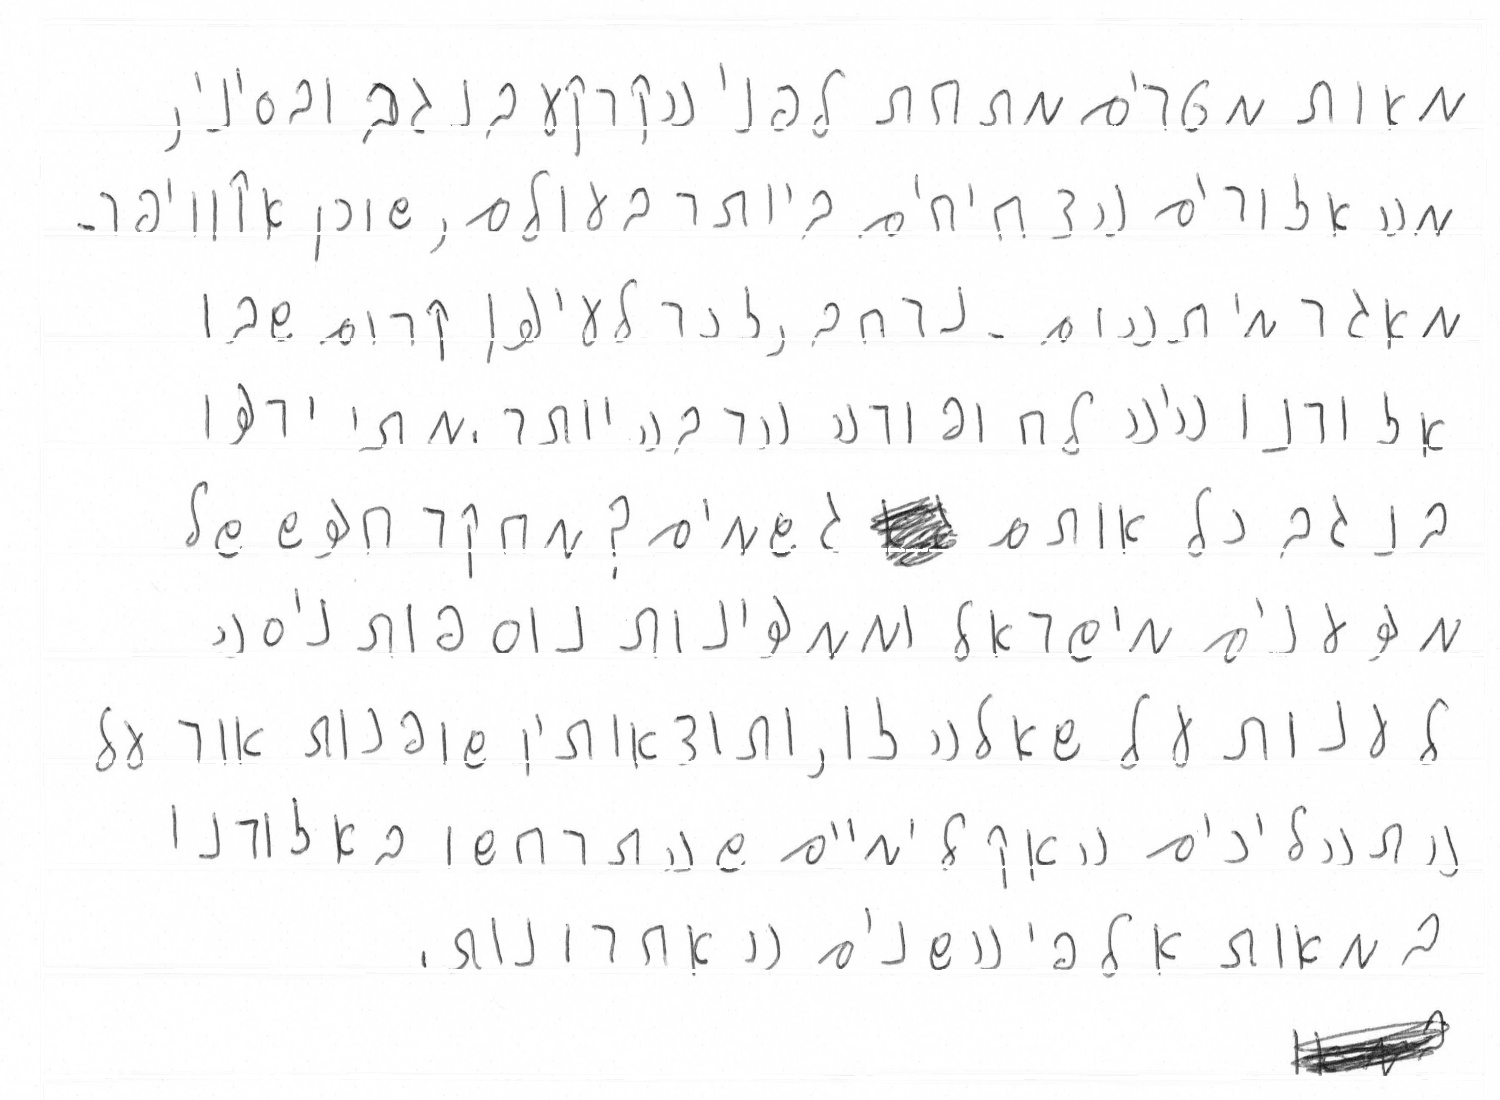 מאות מטרים מתחת לפני הקרקע בנגב ובסיני,
מהאזורים הצחיחים ביותר בעולם, שוכן אקוויפר -
מאגר מי תהום - נרחב, זכר לעידן קדום שבו
אזורנו היה לח ופורה הרבה יותר. מתי ירדו
בנגב כל אותם גשמים? מחקר חדש של
מדענים מישראל וממדינות נוספות ניסה
לענות על שאלה זו, ותוצאותיו שופכות אור על
התהליכים האקלימיים שהתרחשו באזורנו
במאות אלפי השנים האחרונות.